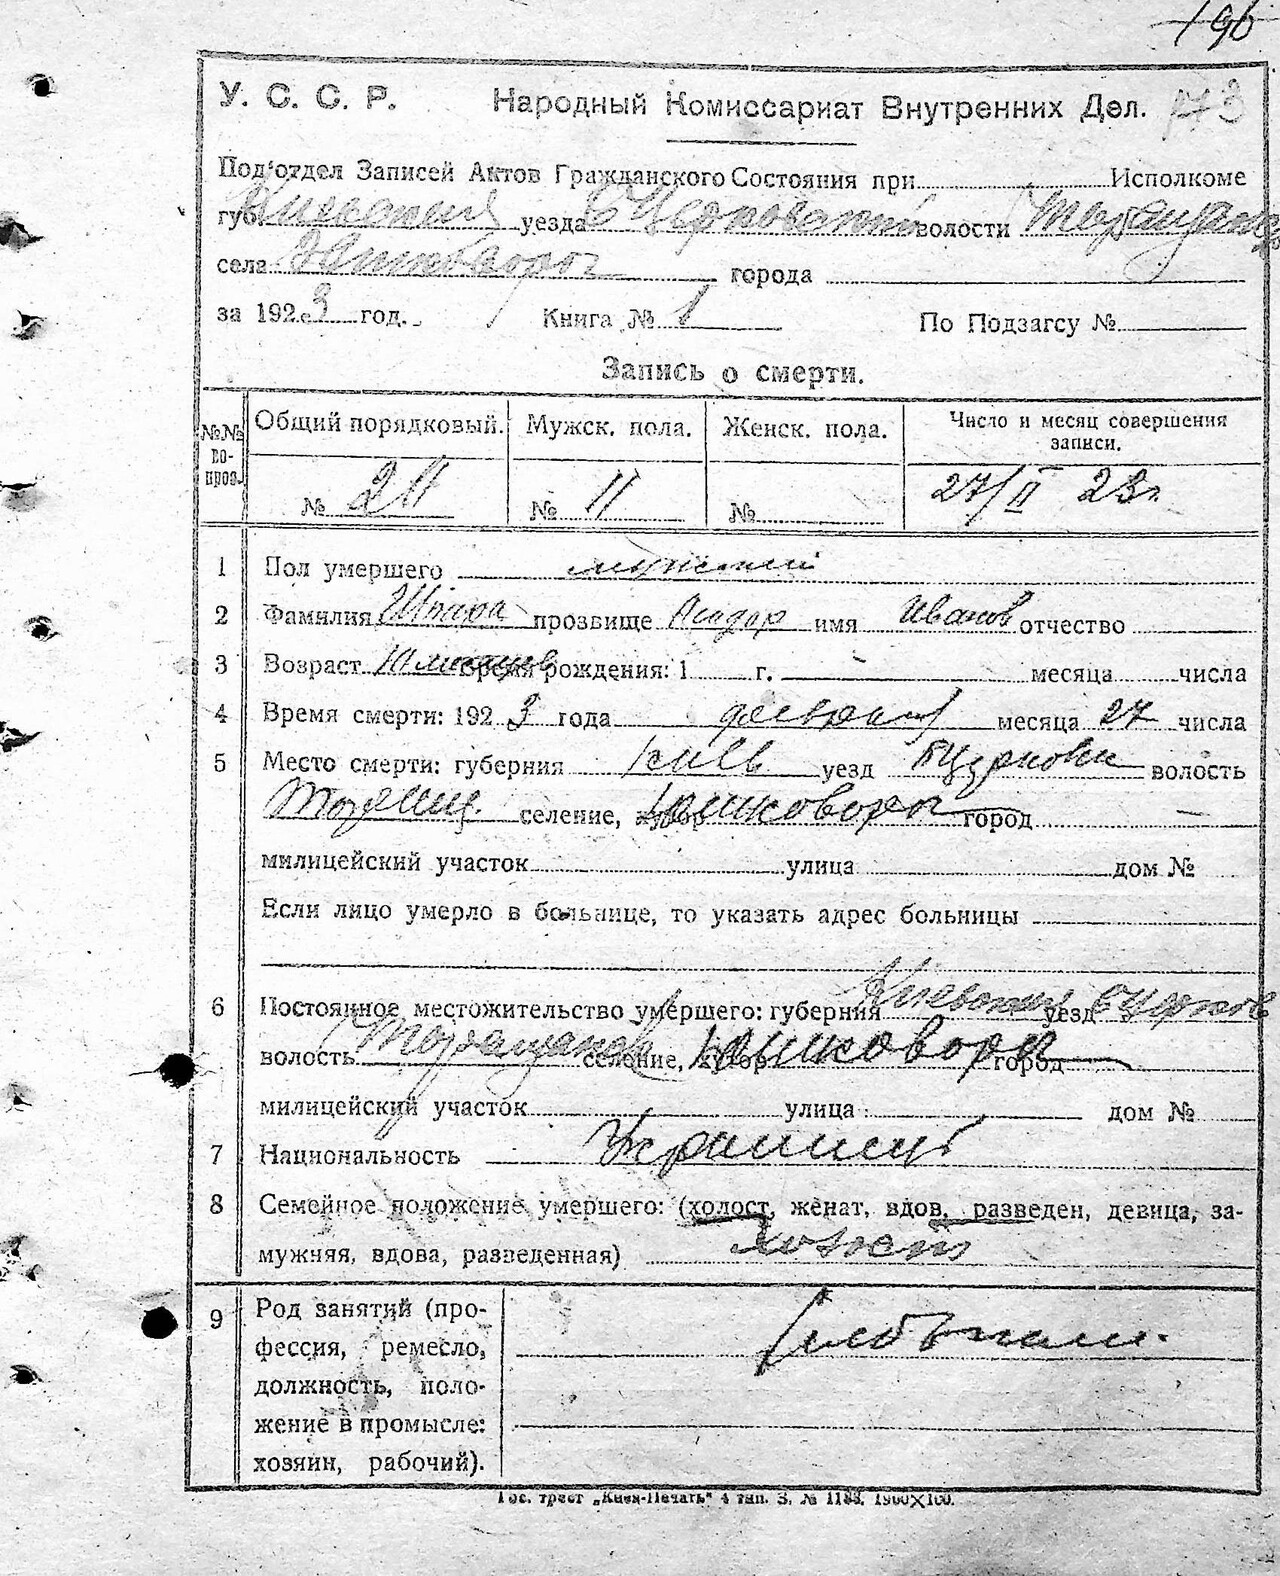 196
У. С. С. Р. Народный Комиссариат Внутренних Дел. 173
Под'отдел Записей Актов Гражданского Состояния при Исполкоме
губ. Киевской уезда БЦерковской волости Таращанской
села города
за 1923 год. Книга № 1 По Подзагсу №
Запись о смерти.
№№ во-проз. Общий порядковый. Мужск. пола. Женск. пола. Число и месяц совершения записи.
№ № 11 № 27/II 23г
1 Пол умершего мужской
2 Фамилия Шпара прозвище Исидор имя Иванов отчество
3 Возраст 10 месяцев Время рождения: 1 г. — месяца числа
4 Время смерти: 1923 года февраля месяца 27 числа
5 Место смерти: губерния Киев уезд БЦерковск волость
Таращ. селение, хутор город —
милицейский участок улица дом №
Если лицо умерло в больнице, то указать адрес больницы
6 Постоянное местожительство умершего: губерния Киевская уезд БЦерков
волость Таращанск селение, хутор город
милицейский участок улица дом №
7 Национальность Украинец
8 Семейное положение умершего: (холост, женат, вдов, разведен, девица, за-
мужняя, вдова, разведенная) холост
9 Род занятий (про-
фессия, ремесло,
должность, поло-
жение в промысле:
хозяин, рабочий).
Гос. трест „Киев-Печать" 4 тип. З. № 1183. 1900X100.